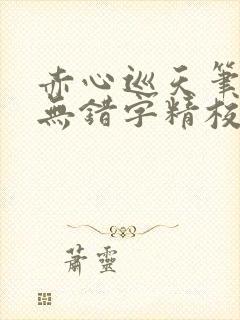 赤心巡天筆
無錯字精校
蕭靈